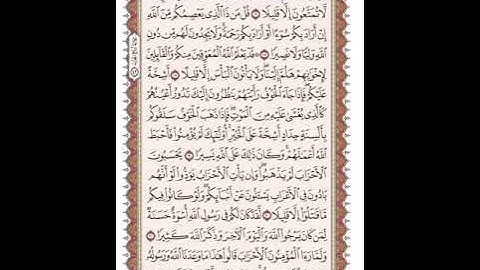 لَّا تُمَتَّعُونَ إِلَّا قَلِيلًا ۝١٦ قُلْ مَن ذَا الَّذِي يَعْصِمُكُم مِّنَ اللَّهِ
إِنْ أَرَادَ بِكُمْ سُوٓءًا أَوْ أَرَادَ بِكُمْ رَحْمَةً وَلَا يَجِدُونَ لَهُم مِّن دُونِ
اللَّهِ وَلِيًّا وَلَا نَصِيرًا ۝١٧ ۞ قَدْ يَعْلَمُ اللَّهُ الْمُعَوِّقِينَ مِنكُمْ وَالْقَآئِلِينَ
لِإِخْوَانِهِمْ هَلُمَّ إِلَيْنَا وَلَا يَأْتُونَ الْبَأْسَ إِلَّا قَلِيلًا ۝١٨ أَشِحَّةً
عَلَيْكُمْ فَإِذَا جَآءَ الْخَوْفُ رَأَيْتَهُمْ يَنظُرُونَ إِلَيْكَ تَدُورُ أَعْيُنُهُمْ
كَالَّذِي يُغْشَىٰ عَلَيْهِ مِنَ الْمَوْتِ فَإِذَا ذَهَبَ الْخَوْفُ سَلَقُوكُم
بِأَلْسِنَةٍ حِدَادٍ أَشِحَّةً عَلَى الْخَيْرِ أُو۟لَٰٓئِكَ لَمْ يُؤْمِنُوا۟ فَأَحْبَطَ
اللَّهُ أَعْمَالَهُمْ وَكَانَ ذَٰلِكَ عَلَى اللَّهِ يَسِيرًا ۝١٩ يَحْسَبُونَ
الْأَحْزَابَ لَمْ يَذْهَبُوا۟ وَإِن يَأْتِ الْأَحْزَابُ يَوَدُّوا۟ لَوْ أَنَّهُم
بَادُونَ فِي الْأَعْرَابِ يَسْـَٔلُونَ عَنْ أَنۢبَآئِكُمْ وَلَوْ كَانُوا۟ فِيكُم
مَّا قَٰتَلُوٓا۟ إِلَّا قَلِيلًا ۝٢٠ لَّقَدْ كَانَ لَكُمْ فِي رَسُولِ اللَّهِ أُسْوَةٌ حَسَنَةٌ
لِّمَن كَانَ يَرْجُوا۟ اللَّهَ وَالْيَوْمَ الْآخِرَ وَذَكَرَ اللَّهَ كَثِيرًا ۝٢١
وَلَمَّا رَءَا الْمُؤْمِنُونَ الْأَحْزَابَ قَالُوا۟ هَٰذَا مَا وَعَدَنَا اللَّهُ وَرَسُولُهُ